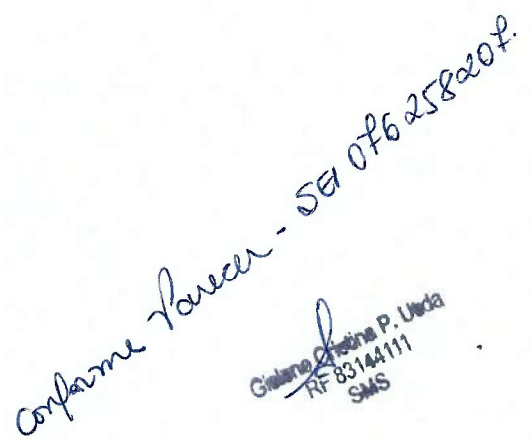 conforme Parecer - SEI 076258207.
Gislene Cristina P. Ueda
RF 83144111
SMS